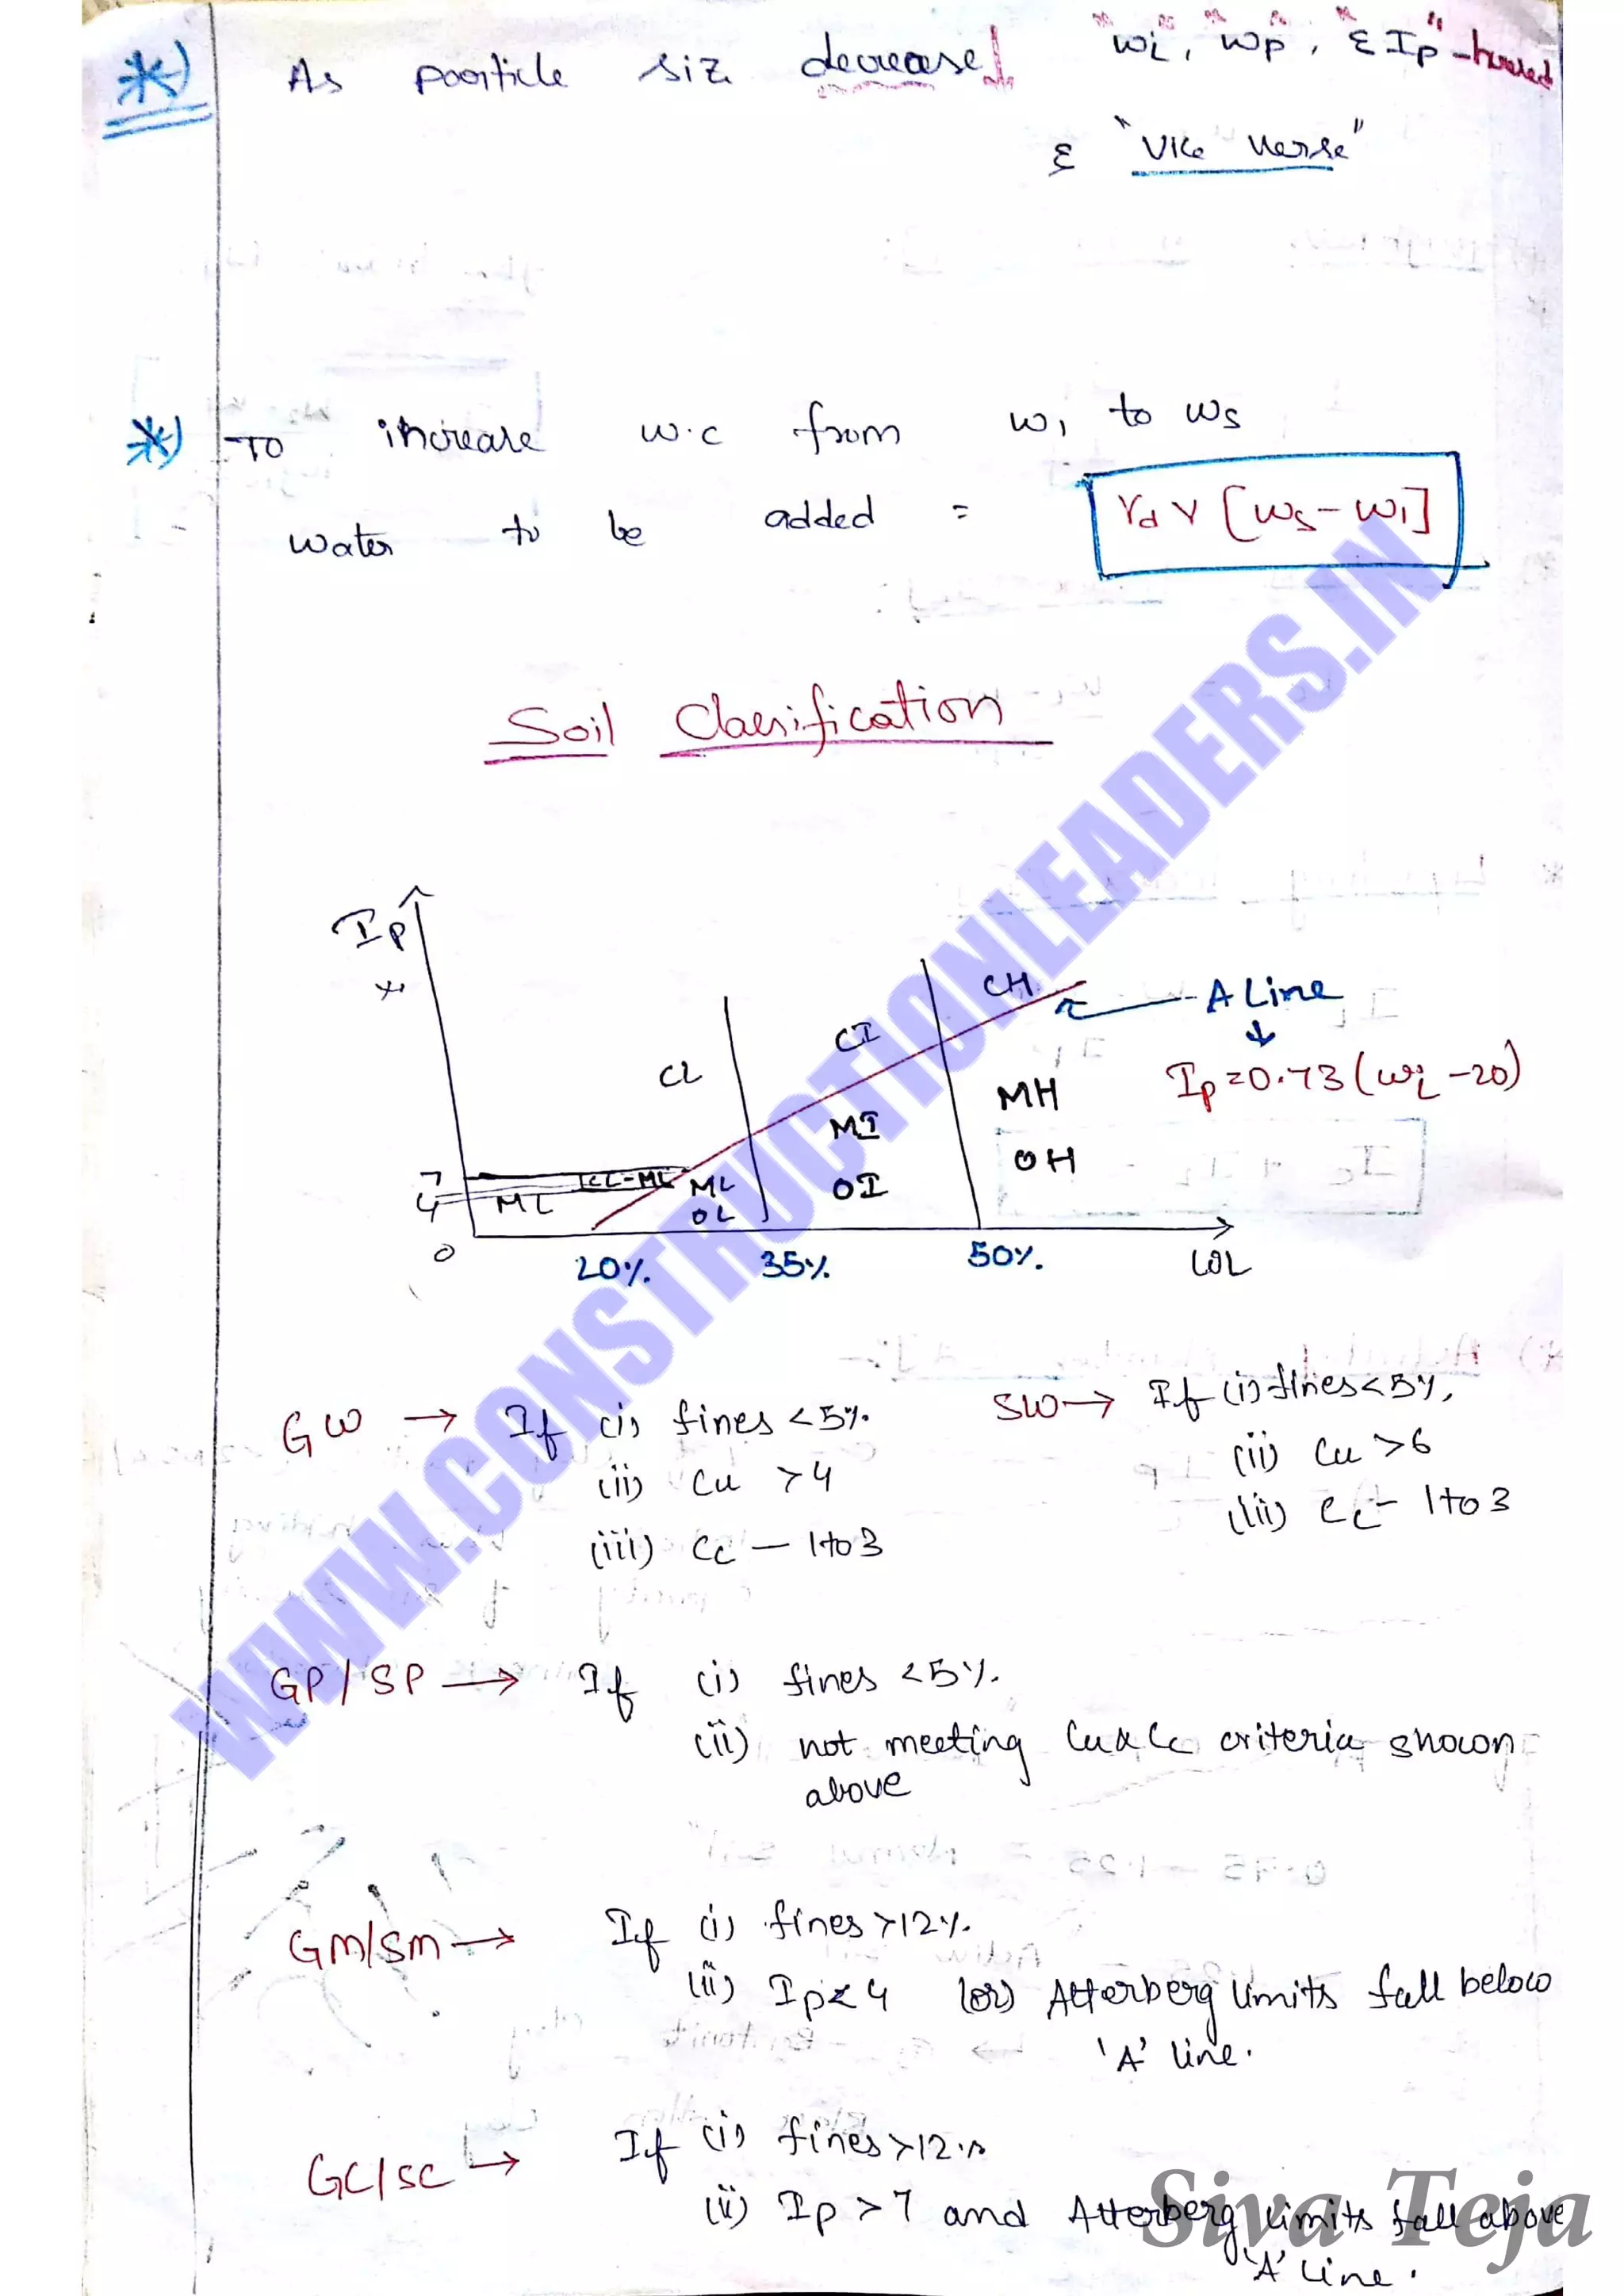 *) As particle siz decrease↓ "WL, Wp, & Ip"
& "Vice Verse"
*) To increase w.c from w1 to ws
water to be added = γd V [ws - w1]
Soil Classification
Ip
CH
A Line
CI
CL
Ip = 0.73 (WL - 20)
MH
MI
OH
7
CL-ML
ML
OI
4
ML
OL
0
20%. 35%. 50%. WL
GW → If (i) fines <5%.
(ii) Cu >4
(iii) Cc - 1to3
SW → If (i) fines <5%.
(ii) Cu >6
(iii) Cc - 1to3
GP/SP → If (i) fines <5%.
(ii) not meeting Cu & Cc criteria shown
above
GM/SM → If (i) fines >12%.
(ii) Ip < 4 (or) Atterberg limits fall below
'A' line.
GC/SC → If (i) fines >12%
(ii) Ip > 7 and Atterberg limits fall above
'A' line.
WWW.CONSTRUCTIONLEADERS.IN
Siva Teja